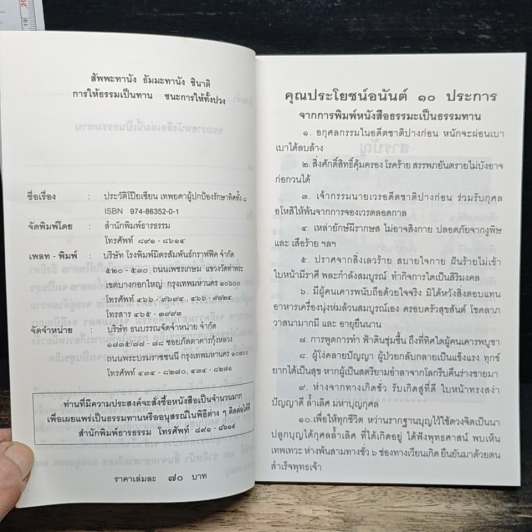 สัพพะทานัง ธัมมะทานัง ชินาติ
การให้ธรรมเป็นทาน ชนะการให้ทั้งปวง
ชื่อเรื่อง : ประวัติโป๊ยเซียน เทพยดาผู้ปกป้องรักษาทิศทั้ง ๘
ISBN 974-86352-0-1
จัดพิมพ์โดย : สำนักพิมพ์อารธรรม
โทรศัพท์ ๘๙๐-๘๖๑๔
เพลท - พิมพ์ : บริษัท โรงพิมพ์มิตรสัมพันธ์กราฟฟิค จำกัด
๕๒๐ - ๕๓๐ ถนนเพชรเกษม แขวงวัดท่าพระ
เขตบางกอกใหญ่ กรุงเทพมหานคร ๑๐๖๐๐
โทรศัพท์
โทรสาร
จัดจำหน่าย : บริษัท ธนบรรณจัดจำหน่าย จำกัด
ซอยภัตตาคารกุ้งหลวง
ถนนพระบรมราชชนนี กรุงเทพมหานคร
โทรศัพท์
ท่านที่มีความประสงค์จะสั่งซื้อหนังสือเป็นจำนวนมาก
เพื่อเผยแพร่เป็นธรรมทานหรืออนุสรณ์ในพิธีต่าง ๆ ติดต่อได้ที่
สำนักพิมพ์อารธรรม โทรศัพท์ ๘๙๐-๘๖๑๔
ราคาเล่มละ ๗๐ บาท
คุณประโยชน์อนันต์ ๑๐ ประการ
จากการพิมพ์หนังสือธรรมะเป็นธรรมทาน
๑. อกุศลกรรมในอดีตชาติปางก่อน หนักจะผ่อนเบา
เบาได้ลบล้าง
๒. สิ่งศักดิ์สิทธิ์คุ้มครอง โรคร้าย สรรพภยันตรายไม่บังอาจ
ก่อกวนได้
๓. เจ้ากรรมนายเวรอดีตชาติปางก่อน ร่วมรับกุศล
อโหสิให้พ้นจากการจองเวรตลอดกาล
๔. เหล่ายักษ์ผีรากษส ไม่อาจลิงกาย ปลอดภัยจากงูพิษ
และ เสือร้าย ฯลฯ
๕. ปราศจากสิ่งเลวร้าย สบายใจกาย ฝันร้ายไม่เข้า
ใบหน้ามีราศี พละกำลังสมบูรณ์ ทำกิจการใดเป็นสิริมงคล
๖. มีผู้คนเคารพนับถือด้วยใจจริง มิได้หวังสิ่งตอบแทน
อาหารเครื่องนุ่งห่มล้วนสมบูรณ์เอง ครอบครัวสุขสันต์ โชคลาภ
วาสนามากมี และ อายุยืนนาน
๗. การพูดการทำ ฟ้าดินชุ่มชื้น ถึงที่ทิศใดผู้คนเคารพบูชา
๘. ผู้โง่คลายปัญญา ผู้ป่วยกลับกลายเป็นแข็งแรง ทุกข์
ยากได้เป็นสุข หากผู้เป็นสตรียามอำลาจากโลกรีบคืนร่างชายมา
๙. ห่างจากทางเกิดชั่ว รับเกิดสู่ที่ดี ใบหน้าทรงสง่า
ปัญญาดี ล้ำเลิศ มหาบุญกุศล
๑๐. เพื่อให้ทุกชีวิต หว่านรากฐานบุญไว้ใช้ดวงจิตเป็นนา
ปลูกบุญได้กุศลล้ำเลิศ ที่ได้เกิดอยู่ ได้ฟังพุทธศาสน์ พบเห็น
เทพเทวะ ห่างพ้นสามทางชั่ว ๖ ช่องทางเวียนเกิด ยืนยันมาด้วยตน
สำเร็จพุทธเจ้า